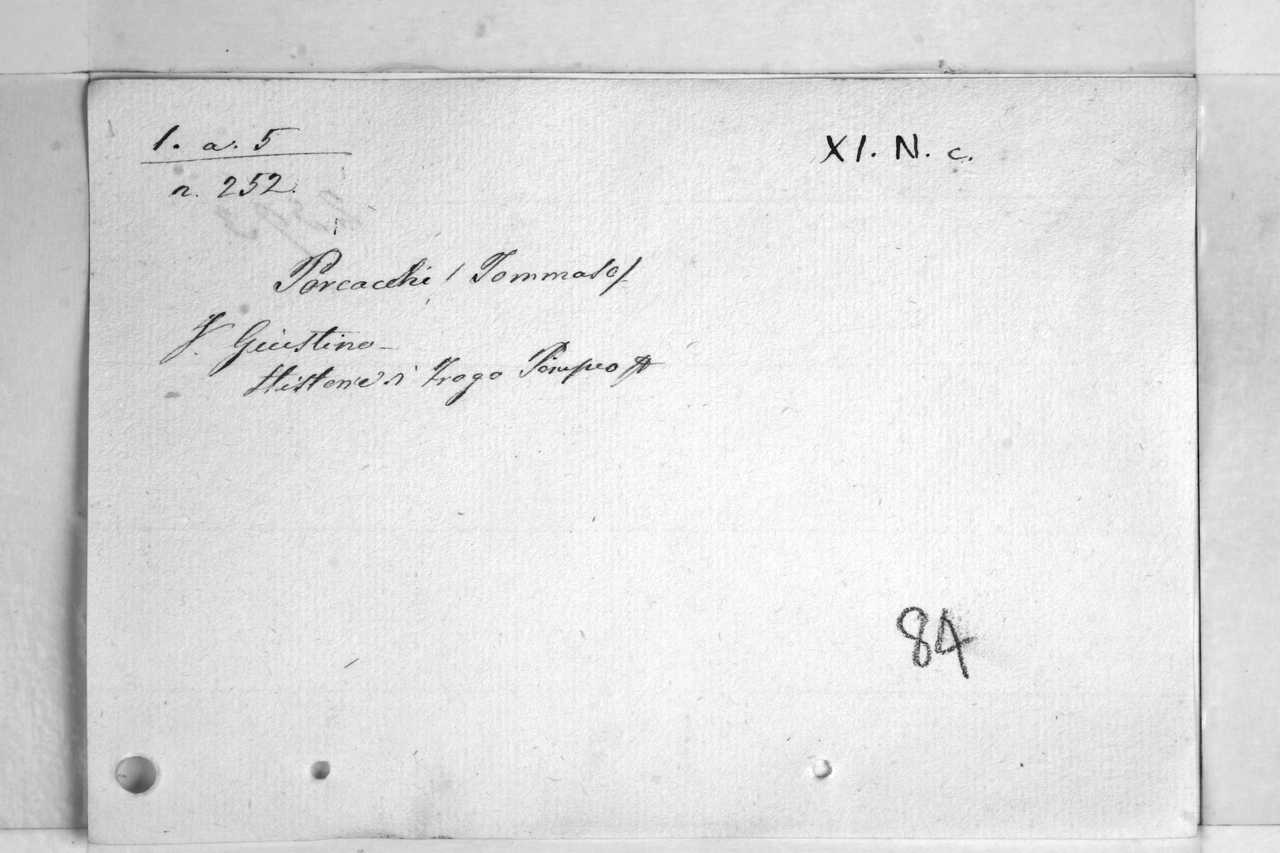 1. a. 5
XI. N. c.
n. 252.
Porcacchi / Tommaso /
V. Giustino
Historie di Trogo Pompeo
84